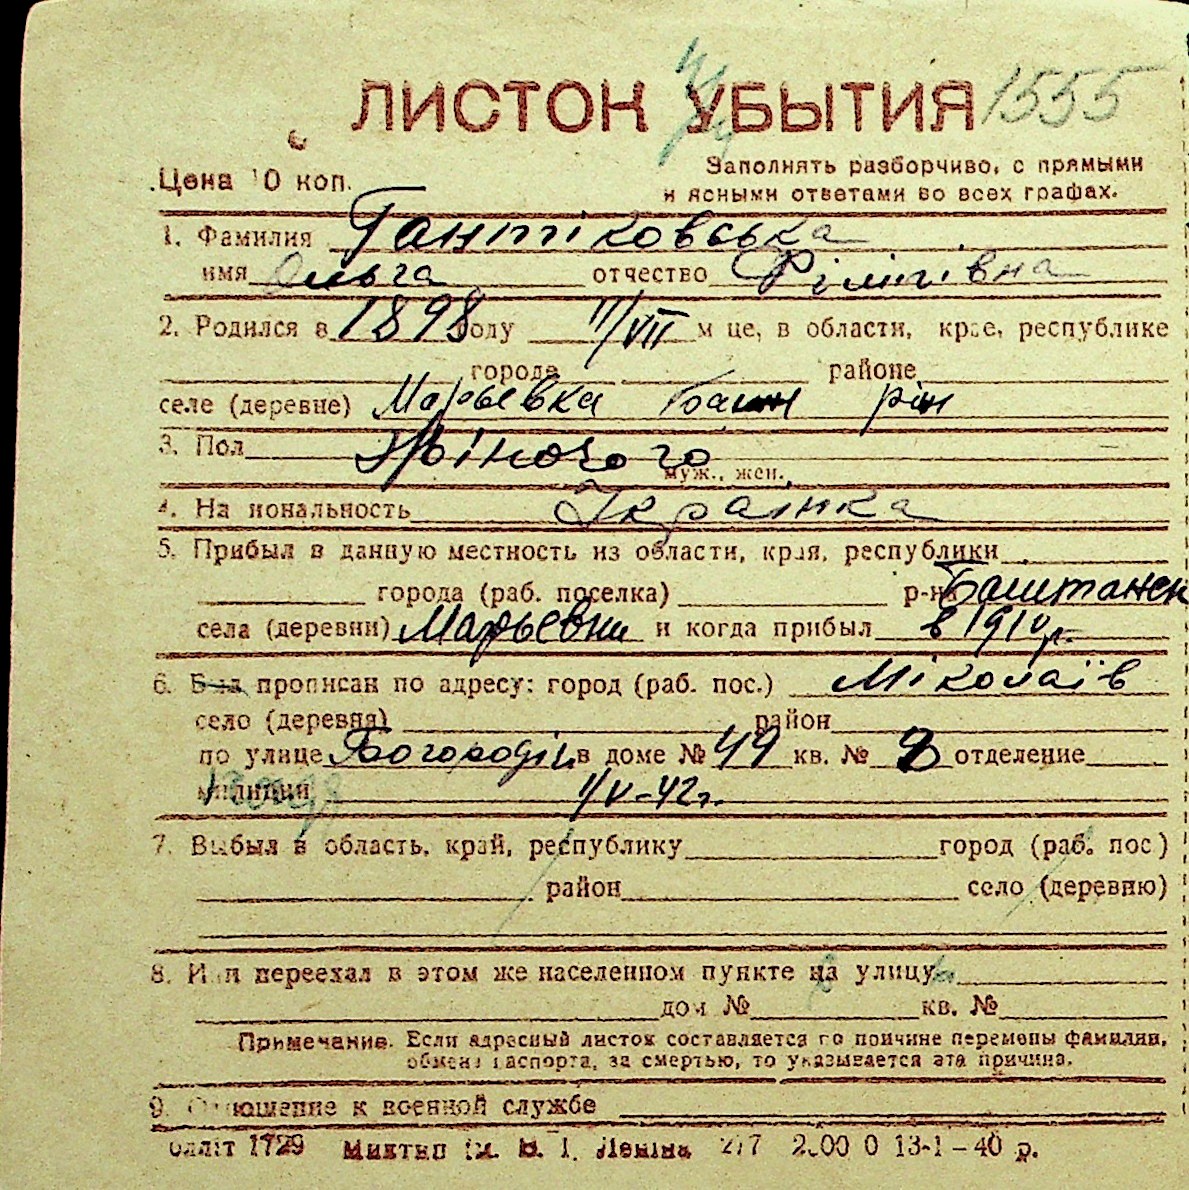 ЛИСТОК УБЫТИЯ 1555
Цена 10 коп.
Заполнять разборчиво, с прямыми
и ясными ответами во всех графах.
1. Фамилия
имя Ольга отчество
2. Родился в 1898 году 11/VII м це, в области, крае, республике
города районе
селе (деревне) Марьевка Башт рн
3. Пол Жіночого
муж., жен.
4. Национальность Українка
5. Прибыл в данную местность из области, края, республики
города (раб. поселка) р-н Баштанск
села (деревни) Марьевки и когда прибыл в 1910 г.
6. Был прописан по адресу: город (раб. пос.) Міколаїв
село (деревня) район
по улице в доме № 49 кв. № отделение
милиции 1/V-42г.
7. Выбыл в область, край, республику город (раб. пос)
район село (деревню)
8. Или переехал в этом же населенном пункте на улицу
дом № кв. №
Примечание. Если адресный листок составляется по причине перемены фамилии,
обмена паспорта, за смертью, то указывается эта причина.
9. Отношение к военной службе
1729 ім. В. І. Леніна 13-1-40 р.